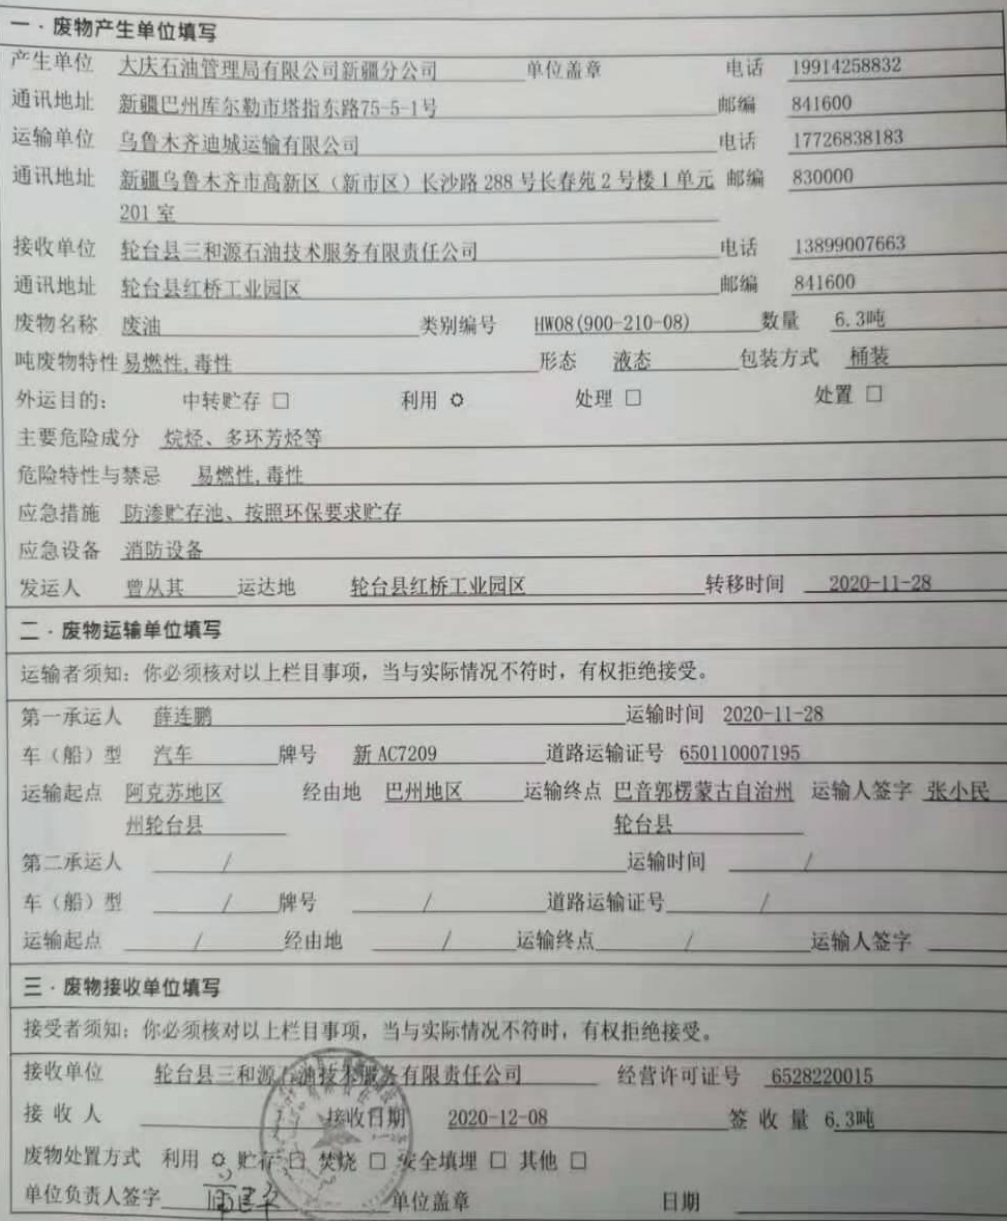 一·废物产生单位填写
产生单位 大庆石油管理局有限公司新疆分公司 单位盖章 电话 19914258832
通讯地址 新疆巴州库尔勒市塔指东路75-5-1号 邮编 841600
运输单位 乌鲁木齐迪城运输有限公司 电话 17726838183
通讯地址 新疆乌鲁木齐市高新区（新市区）长沙路288号长春苑2号楼1单元 邮编 830000
201室
接收单位 轮台县三和源石油技术服务有限责任公司 电话 13899007663
通讯地址 轮台县红桥工业园区 邮编 841600
废物名称 废油 类别编号 HW08(900-210-08) 数量 6.3吨
吨废物特性 易燃性,毒性 形态 液态 包装方式 桶装
外运目的： 中转贮存 □ 利用 ✡ 处理 □ 处置 □
主要危险成分 烷烃、多环芳烃等
危险特性与禁忌 易燃性,毒性
应急措施 防渗贮存池、按照环保要求贮存
应急设备 消防设备
发运人 曾从其 运达地 轮台县红桥工业园区 转移时间 2020-11-28
二·废物运输单位填写
运输者须知：你必须核对以上栏目事项，当与实际情况不符时，有权拒绝接受。
第一承运人 薛连鹏 运输时间 2020-11-28
车（船）型 汽车 牌号 新AC7209 道路运输证号 650110007195
运输起点 阿克苏地区 经由地 巴州地区 运输终点 巴音郭楞蒙古自治州 运输人签字 张小民
州轮台县 轮台县
第二承运人 / 运输时间 /
车（船）型 / 牌号 / 道路运输证号 /
运输起点 / 经由地 / 运输终点 / 运输人签字
三·废物接收单位填写
接受者须知：你必须核对以上栏目事项，当与实际情况不符时，有权拒绝接受。
接收单位 轮台县三和源石油技术服务有限责任公司 经营许可证号 6528220015
接收人 接收日期 2020-12-08 签收量 6.3吨
废物处置方式 利用 ✡ 贮存 □ 焚烧 □ 安全填埋 □ 其他 □
单位负责人签字 单位盖章 日期